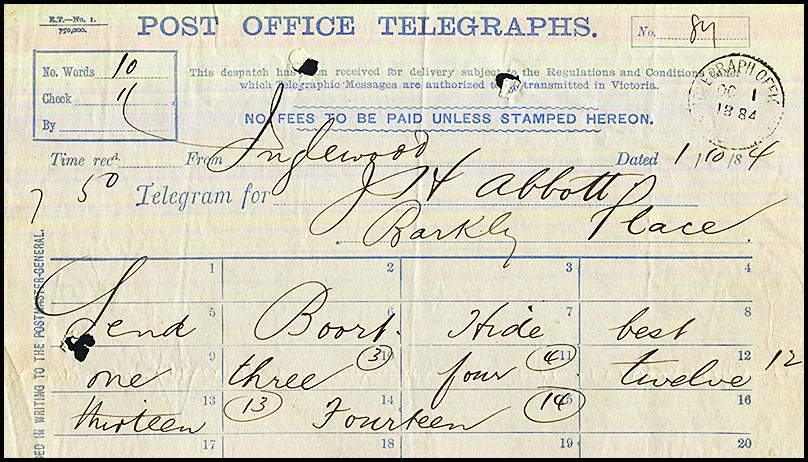 E.T.—No. 1.
750,000.
POST OFFICE TELEGRAPHS.
No. 84
No. Words 10
Check "
By
This despatch has been received for delivery subject to the Regulations and Conditions under
which Telegraphic Messages are authorized to be transmitted in Victoria.
NO FEES TO BE PAID UNLESS STAMPED HEREON.
TELEGRAPH OFFICE
OC 1
1884
Time recd. From Inglewood Dated 1/10/84
7 50 Telegram for J H Abbott
Barkly Place
1 2 3 4
Send Boort Hide best
5 6 7 8
one three (3) four (4) twelve 12
9 10 11 12
thirteen (13) Fourteen (14)
13 14 15 16
17 18 19 20
IN WRITING TO THE POSTMASTER-GENERAL.